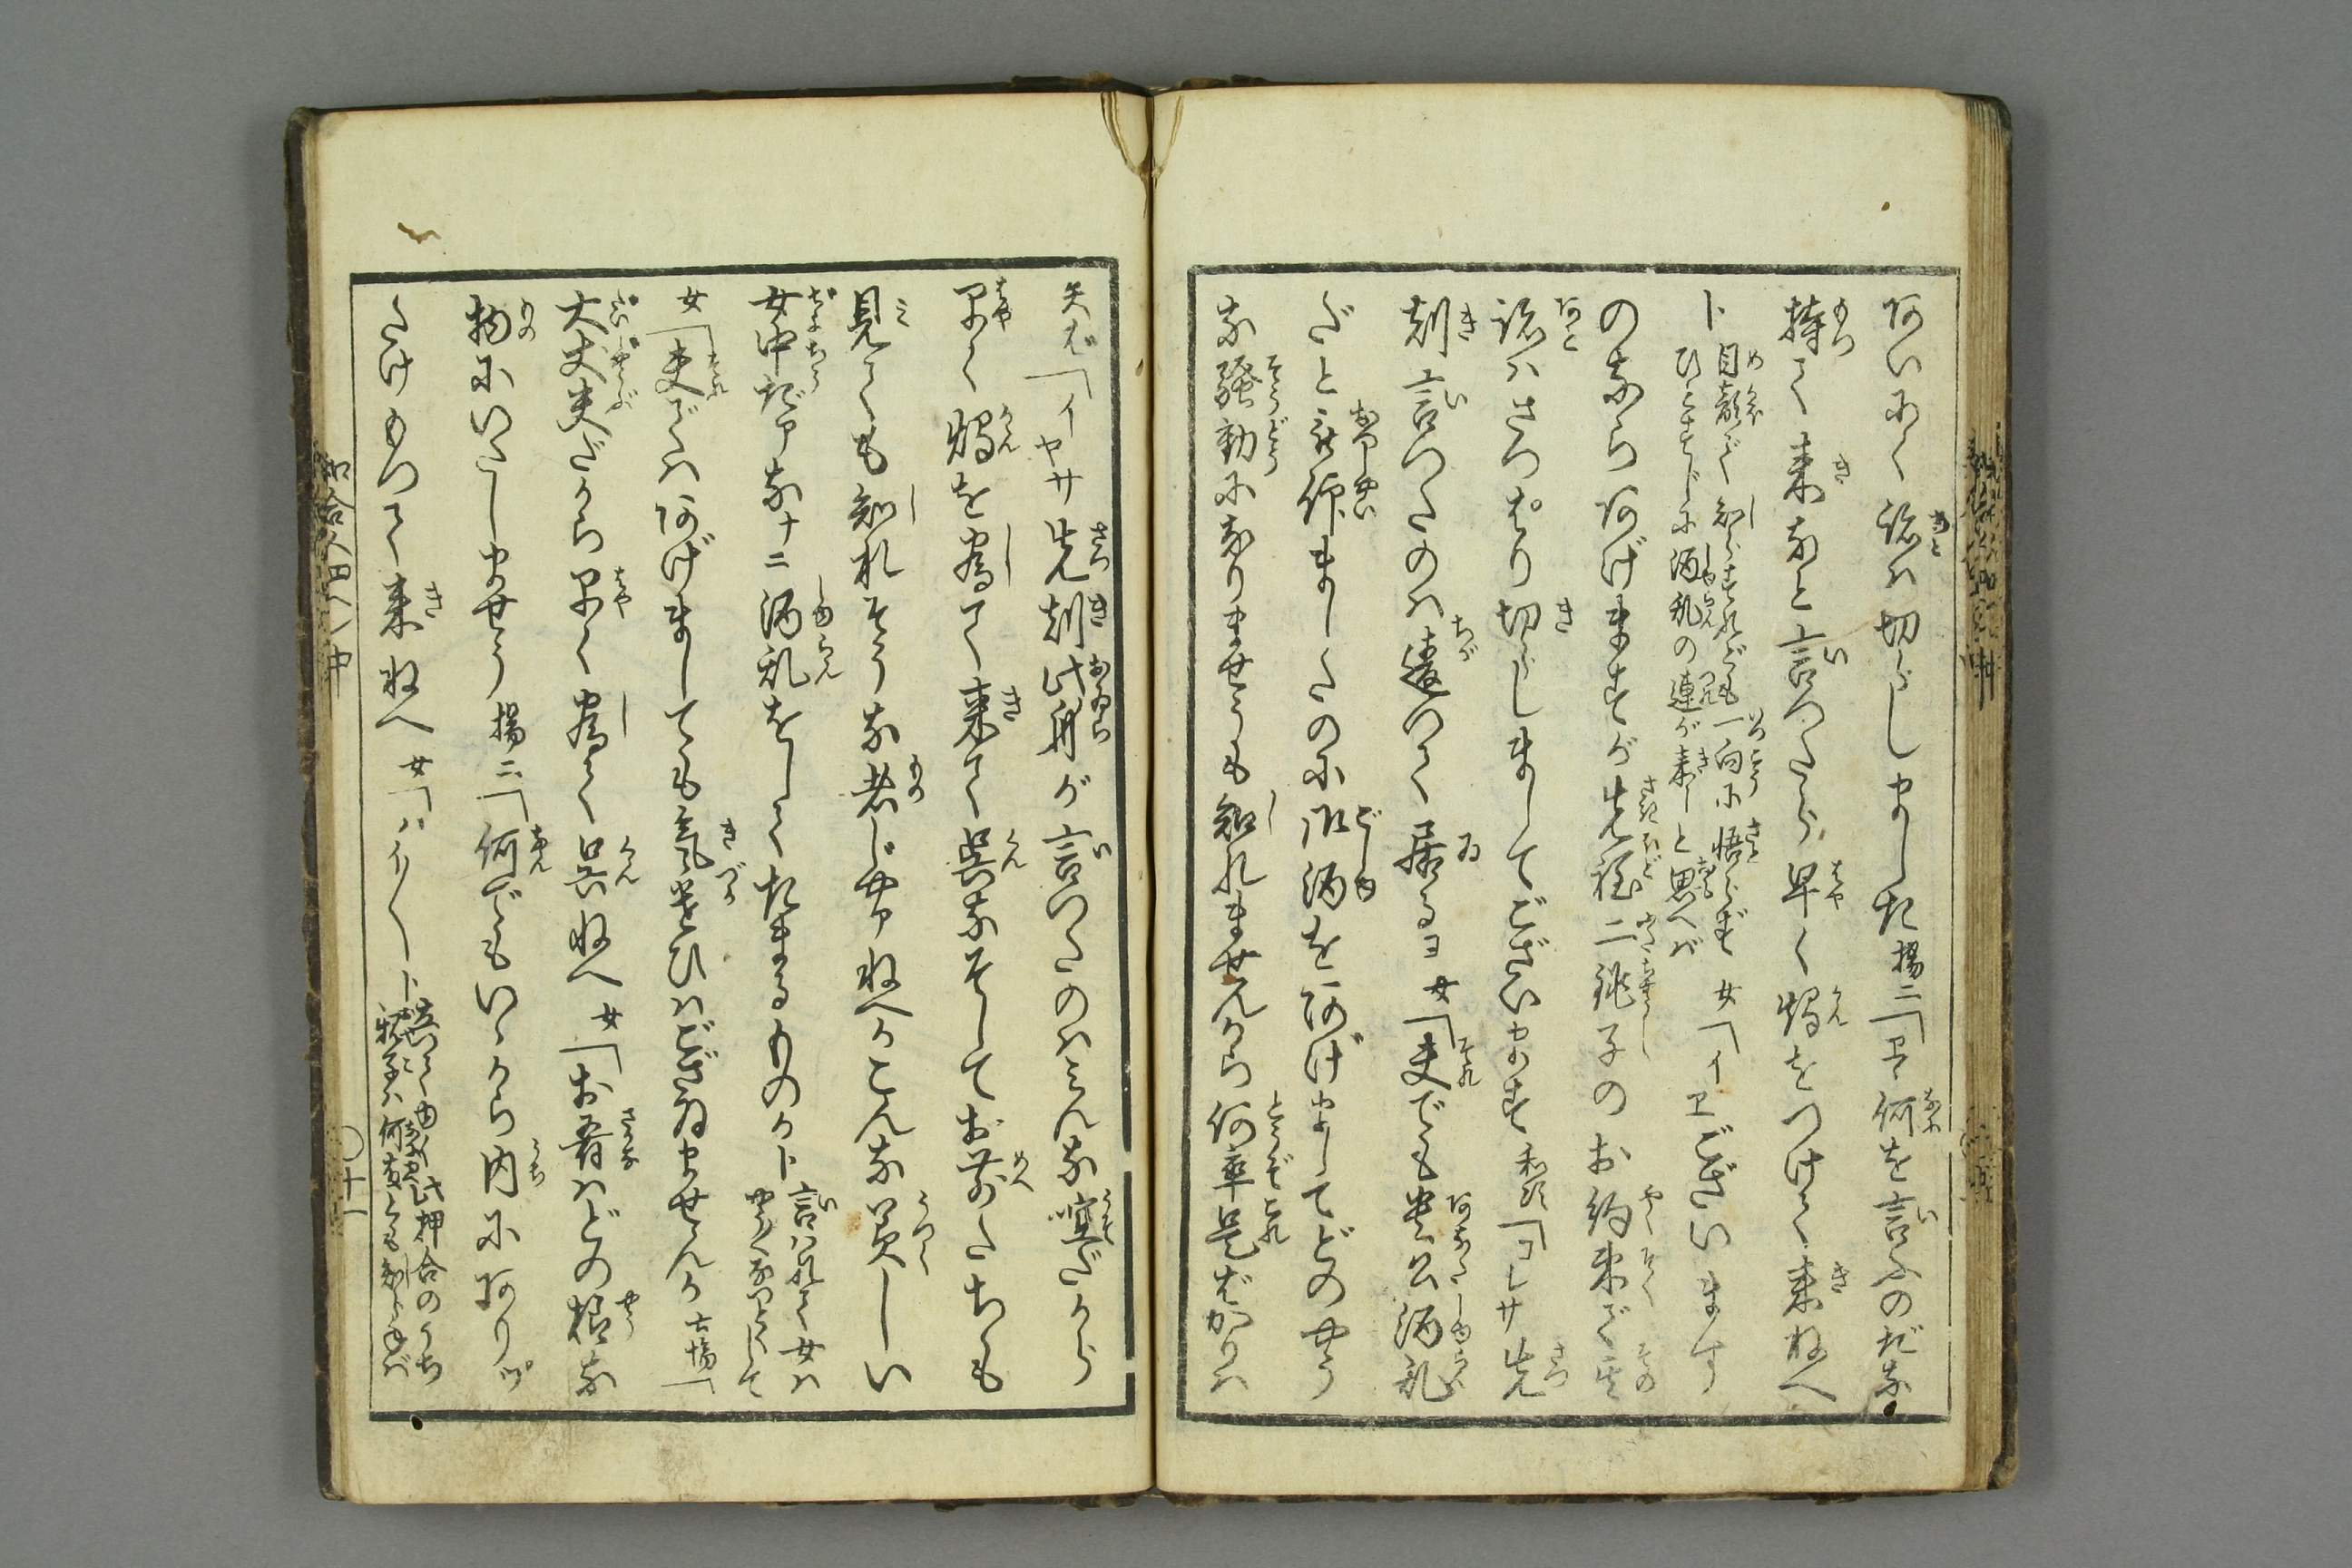 あいにく跡は切らしました 揚二「ヱヽ何を言ふのだな
持て来なと言つたら早く燗をつけて来ねへ
ト目顔で知らすれども一向に悟らず
ひとすじに酒乱の連が来しと思へば 女「イヱございます
のならあげますが先程二銚子のお約束で其
跡はさつぱり切らしましてございます 「コレサ先
刻言つたのは違つて居るヨ 女「夫でも貴公酒乱
だと被仰ましたのに御酒をあげましてどのやう
な騒動になりませうも知れませんから何卒是ばかりは
矢ば「イヤサ先刻此舟が言つたのはみんな嘘だから
早く燗を為て来て呉なそしてお前たちも
見ても知れそうな者じやアねへかこんな美しい
女中だアな十二酒乱をしてたまるものかト 言はれて女は
女「夫ではあげましても気遣ひはござゐませんか 「
大丈夫だから早く為て呉ねへ 女「お肴はどの様な
物にいたしませう 揚二「何でもいゝから内にありツ
たけもつて来ねへ 女「ハイ〳〵ト 此押合のうち
和合人四ノ中
〇十一